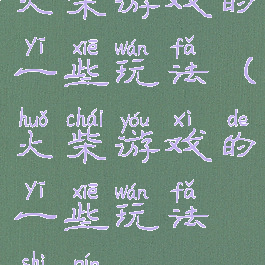 火柴游戏的
yī xiē wán fǎ
一些玩法（
huǒ chái yóu xì de
火柴游戏的
yī xiē wán fǎ
一些玩法
shì pín